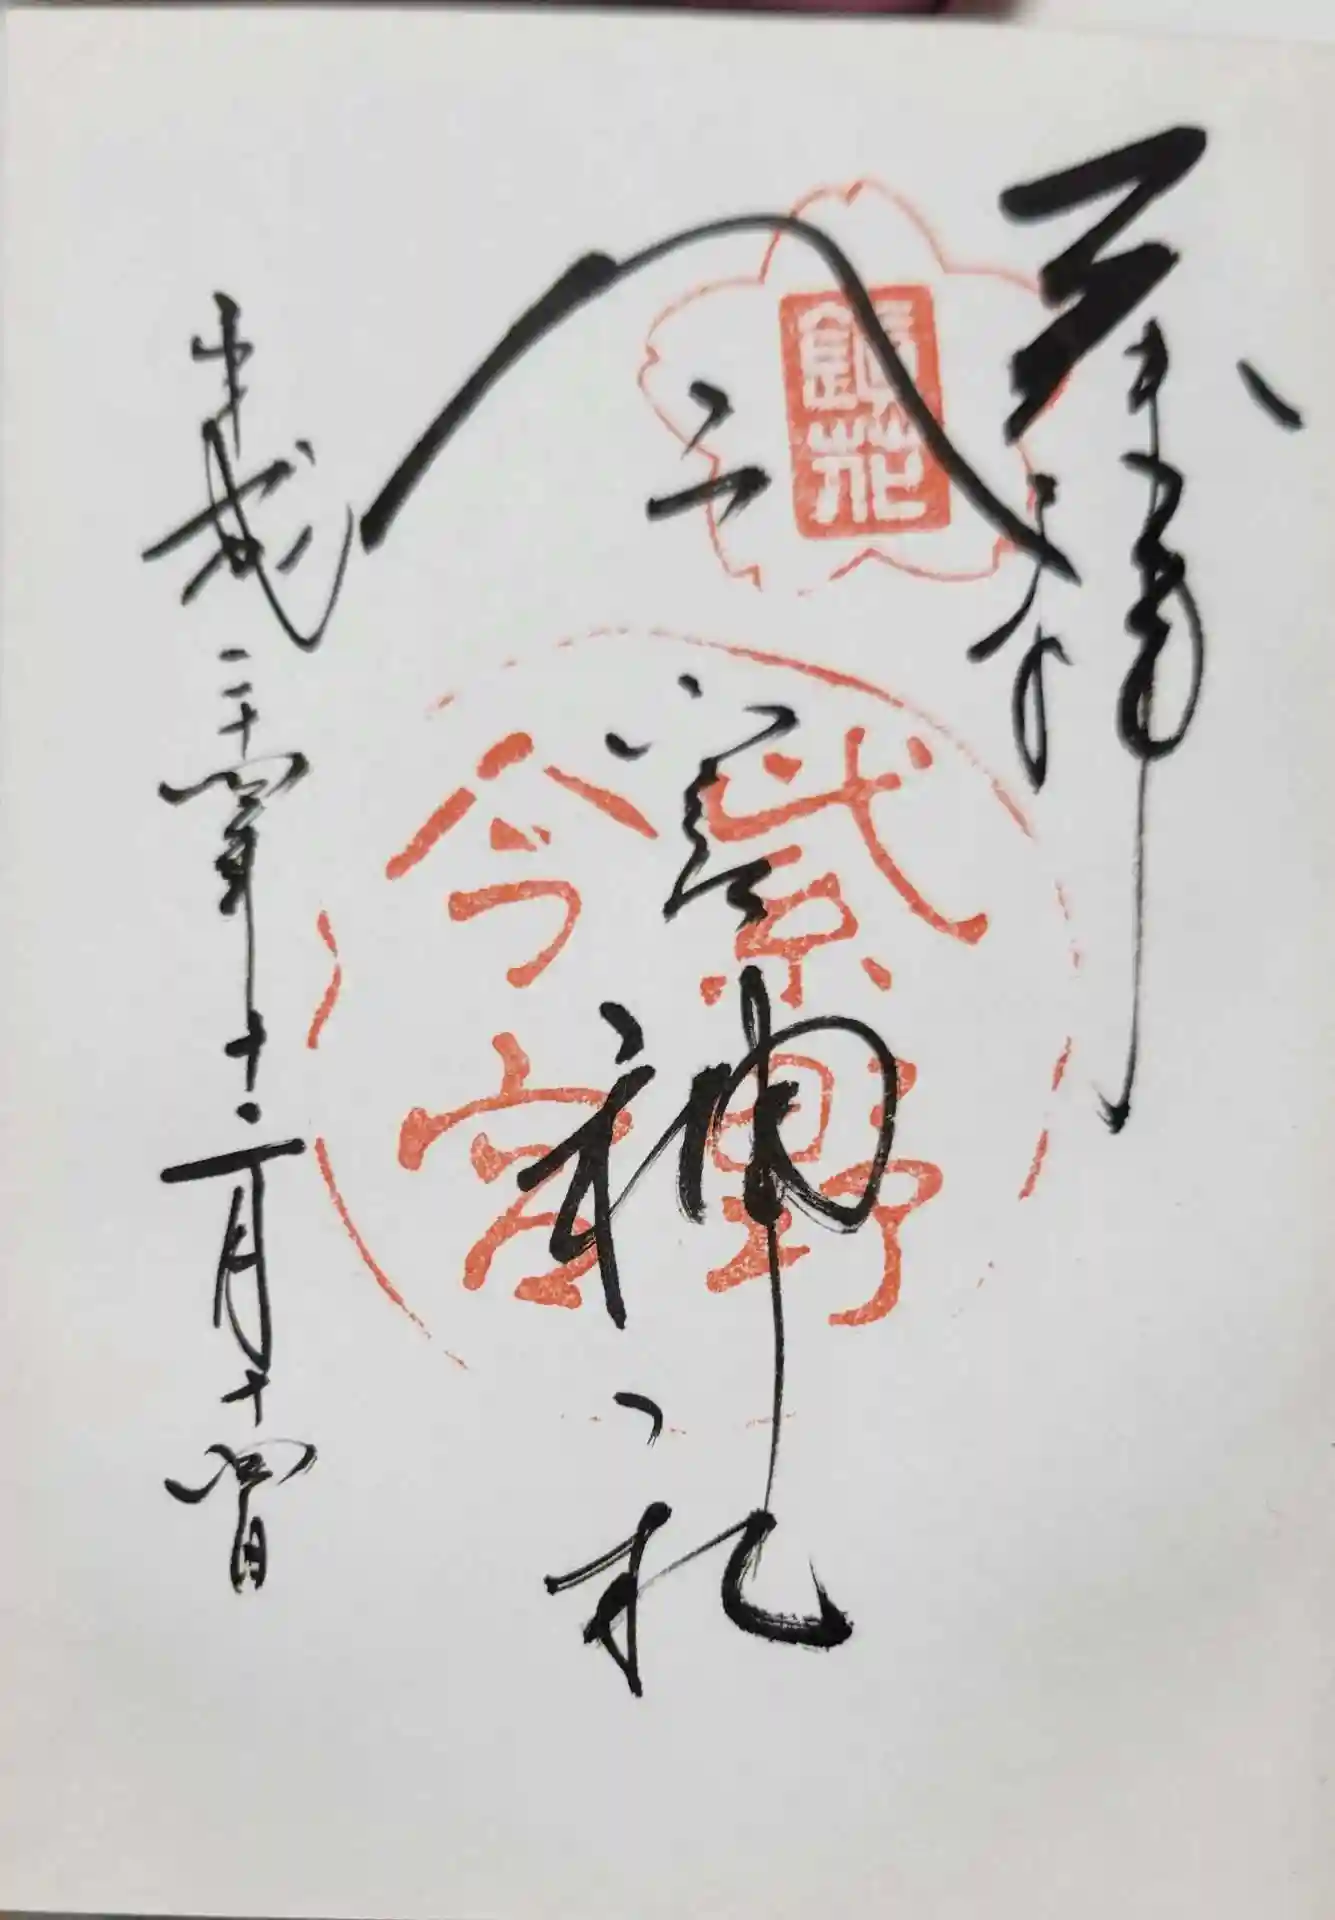 奉拝
鎮花
今宮神社
紫野
今宮
平成二十四年十二月十四日